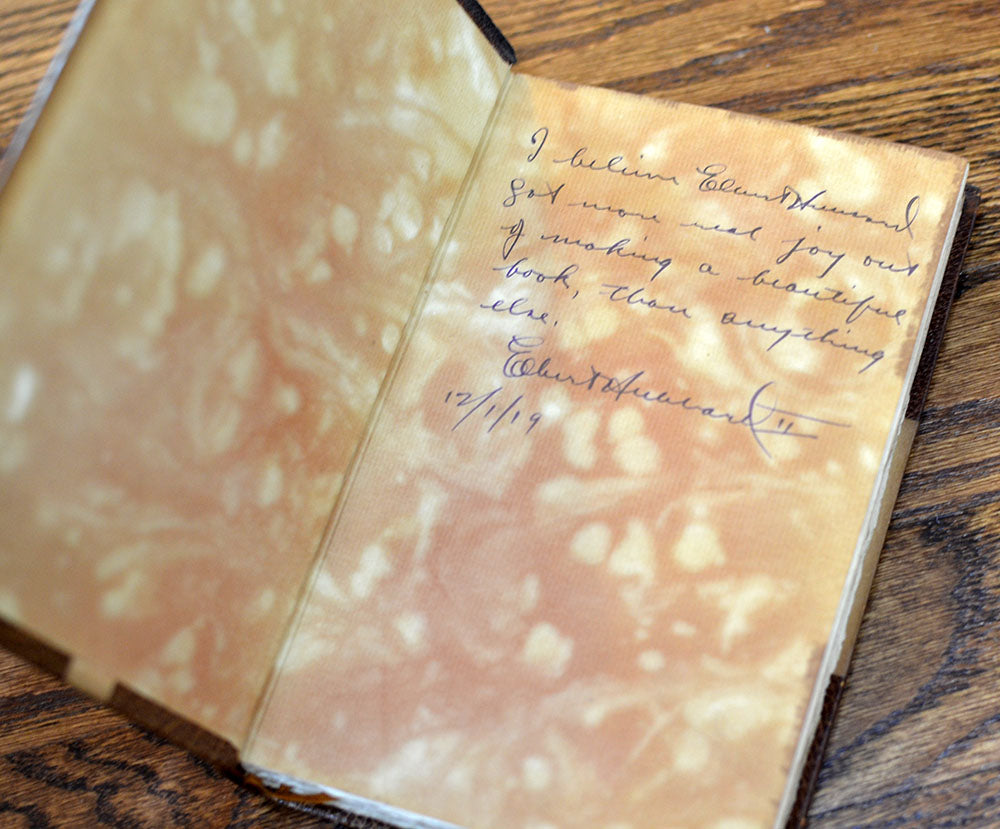 I believe Elbert Hubbard
got more real joy out
of making a beautiful
book, than anything
else.
Elbert Hubbard II
12/1/19